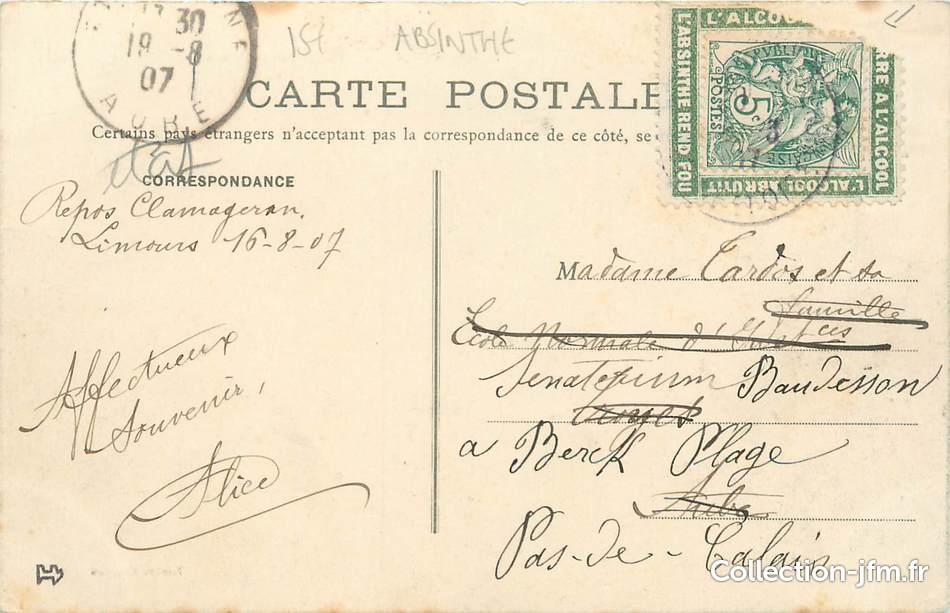 30
18 -8
07
AUBE
15€ ABSINTHE
CARTE POSTALE
Certains pays étrangers n'acceptant pas la correspondance de ce côté, se
L'ALCOOL
L'ABSINTHE REND FOU
L'ALCOOL ABRUTIT
GUERRE A L'ALCOOL
POSTES
5c
CORRESPONDANCE
Repos Clamageran.
Limours 16-8-07
Affectueux
Souvenir,
Alice
Madame Tardos et sa
famille
Ecole Normale d'Instces
Senatorium Baudesson
Troyes
a Berck Plage
Aube
Pas-de-Calais
Collection-jfm.fr